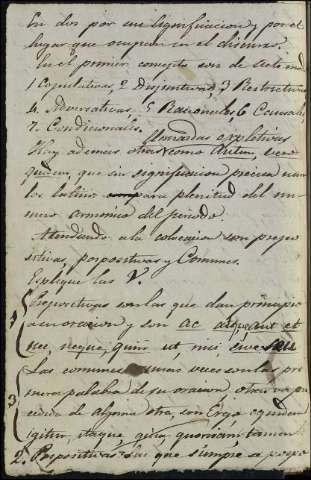 En dos por su significacion y por el
lugar que ocupan en el discurso.
En el primer concepto son de siete
1 Copulativas, 2 Disjuntivas 3 Restrictivas
4. Adversativas 5 Racionales 6 Causales
7. Condicionales. llamadas expletivas
Hay ademas otras como Autem, vero
quidem, que sin significasion precisa usan
los latinos para plenitud del nu-
mero armonico del periodo.
Atendiendo a la colocasion son prepo
sitivas, pospositivas y Comunes.
Esplique las V.
1 Prepositivas son las que dan principio
a una oracion y son ac atque aut et
nec, neque, quin ut, nisi, sive seu
3 Las comunes unas veces son las pri
mera palabra de su oracion otras va pre
cedida de alguna otra, son Ergo equidem
igitur, itaque, quia, quoniam tamen
2. Pospositivas las que siempre se pospo